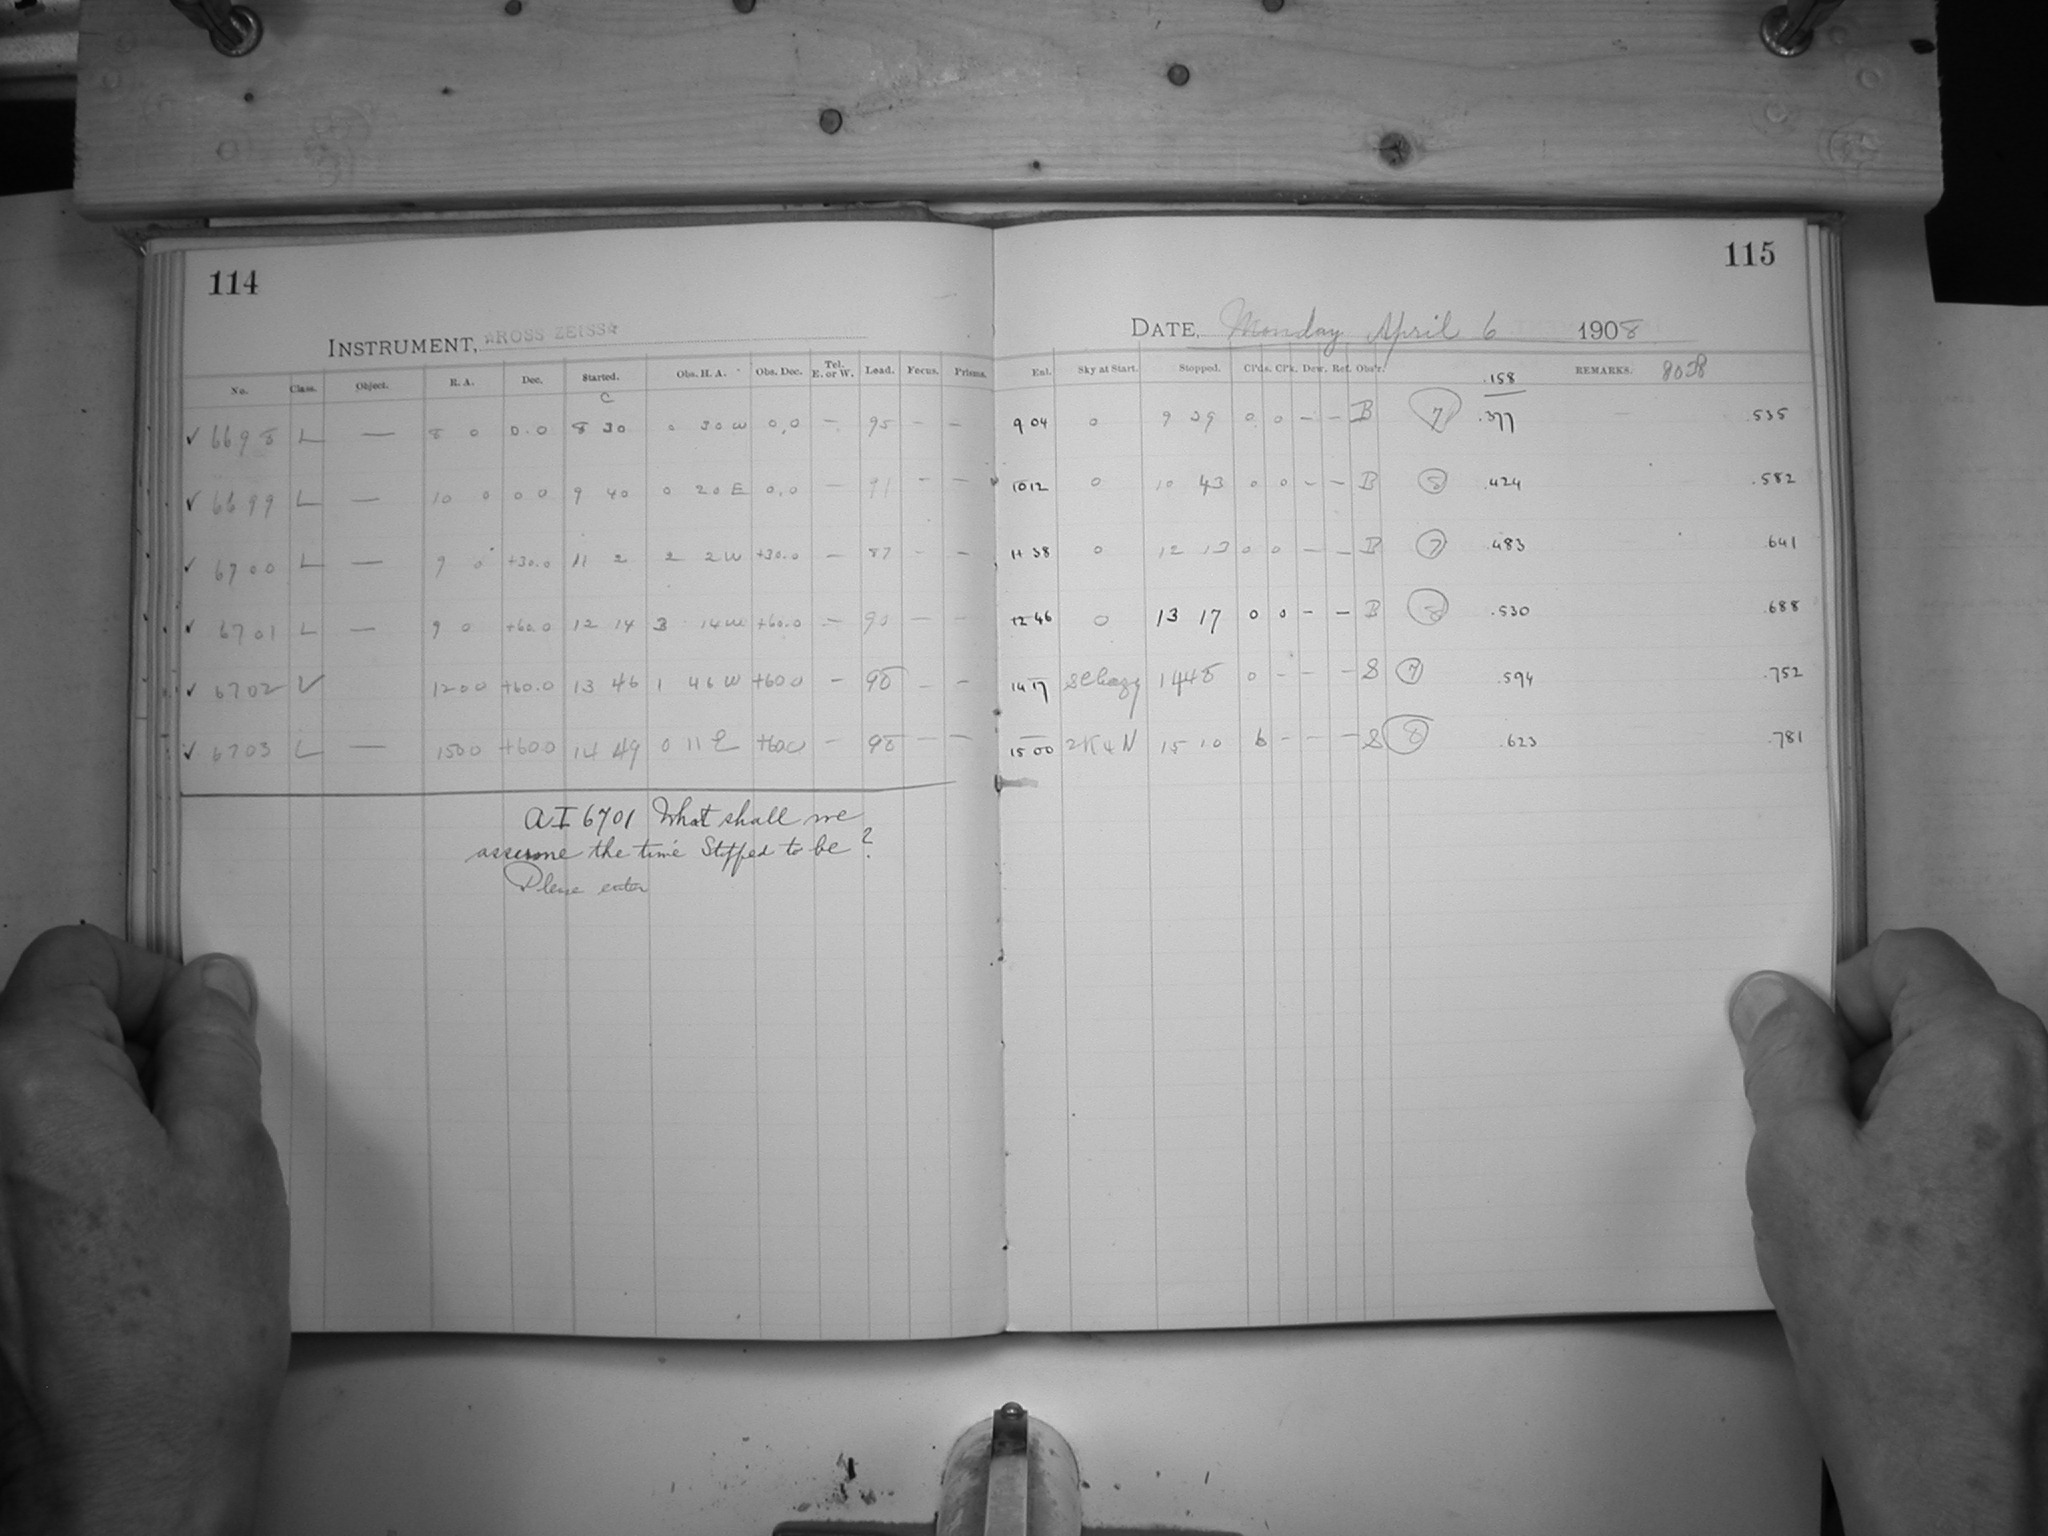 114
115
INSTRUMENT, ☆ROSS ZEISS☆
DATE, Monday April 6 1908
No. Class. Object. R. A. Dec. Started. Obs. H. A. Obs. Dec. Tel. E. or W. Lead. Focus. Prisms. Enl. Sky at Start. Stopped. Cl'ds. Cl'k. Dew. Ref. Obs'r. .158 REMARKS. 8038
c
✓ 6698 L — 8 0 0.0 8 30 0 30 W 0.0 — 95 — — 9 04 0 9 29 0 0 — — B 7 .377 .535
✓ 6699 L — 10 0 0 0 9 40 0 20 E 0.0 — 91 — — 10 12 0 10 43 0 0 — — B 8 .424 .582
✓ 6700 L — 9 0 +30.0 11 2 2 2 W +30.0 — 87 — — 11 38 0 12 13 0 0 — — B 7 .483 .641
✓ 6701 L — 9 0 +60.0 12 14 3 14 W +60.0 — 90 — — 12 46 0 13 17 0 0 — — B 8 .530 .688
✓ 6702 L 12 00 +60.0 13 46 1 46 W +60 0 — 98 — — 14 17 Sl hazy 14 48 0 — — — S 7 .594 .752
✓ 6703 L — 15 00 +60 0 14 49 0 11 E +60 0 — 98 — — 15 00 2K4N 15 10 6 — — — S 8 .623 .781
AI 6701 What shall we
assume the time Stopped to be?
Please enter